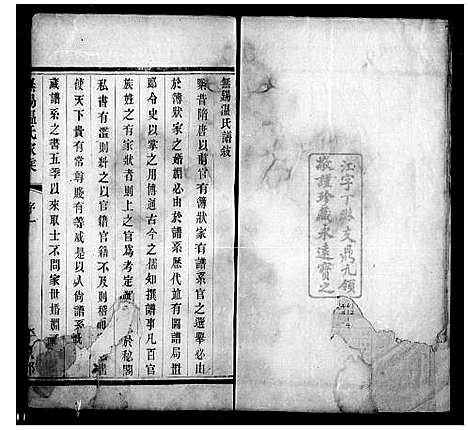 江字丁號支鼎九領
敬謹珍藏永遠寶之
無錫溫氏譜敘
粤昔隋唐以前官有簿狀家有譜系官之選舉必由
於簿狀家之婚姻必由於譜系歷代並有圖譜局置
郎令史以掌之用博通古今之儒知撰譜事凡百官
族姓之有家狀者則上之官爲考定 於秘閣
私書有濫則糾之以官籍官籍不及則稽
使天下貴有常尊賤有等威是以人尚譜系
藏譜系之書五季以來取士不問家世婚姻
無錫溫氏家乘 序一